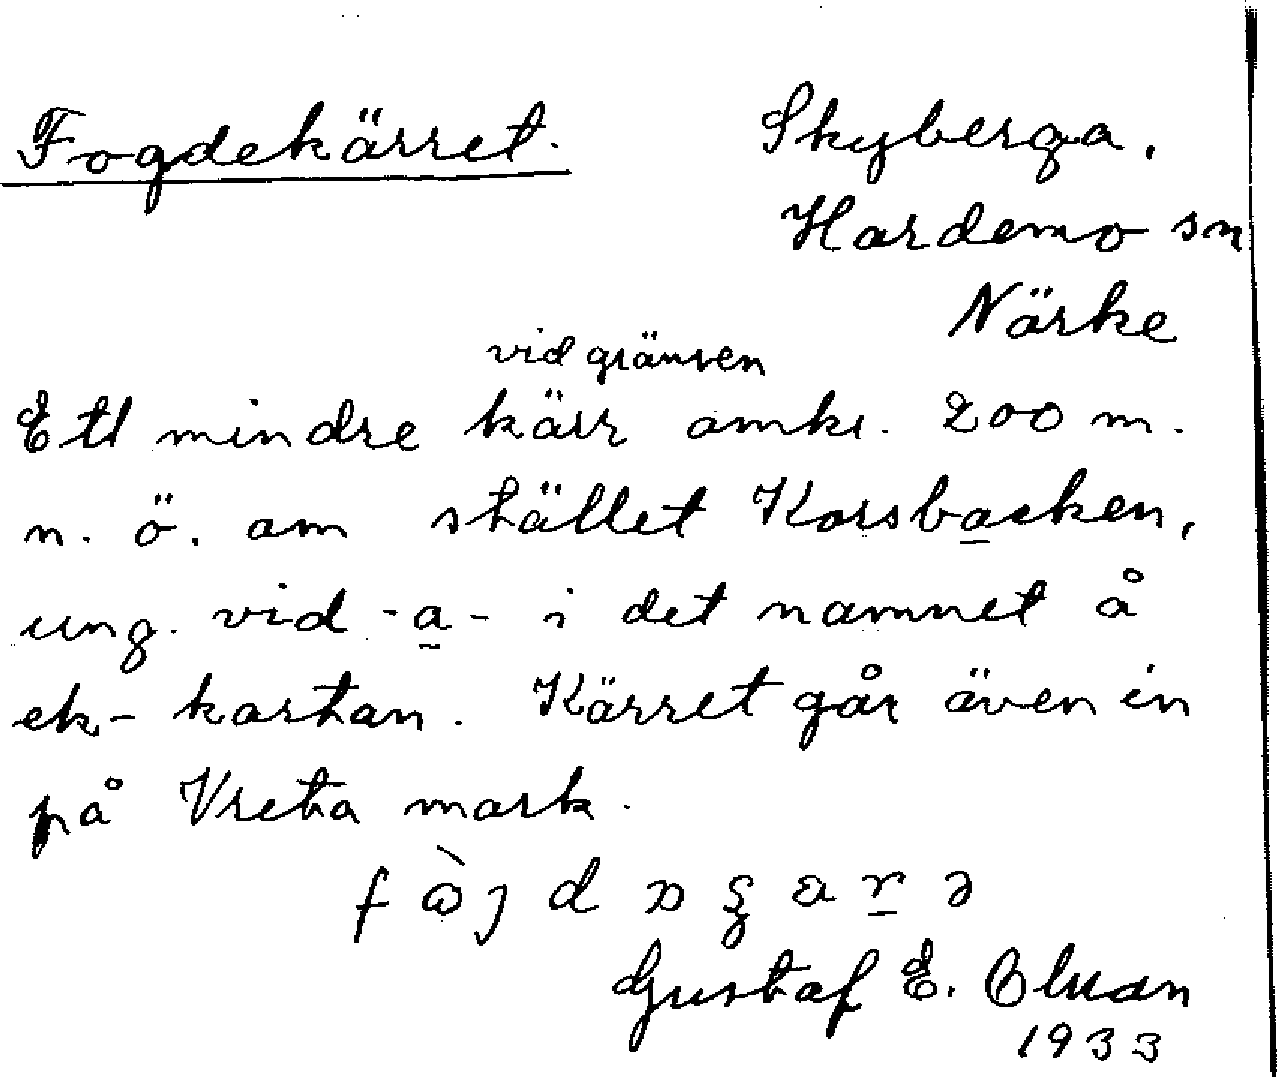 Fogdekärret.
Skyberga.
Hardemo sn
Närke
vid gränsen
Ett mindre kärr omkr. 200 m.
n. ö. om stället Korsbacken,
ung. vid -a- i det namnet å
ek-kartan. Kärret går även in
på Vreta mark.
Gustaf E.
1933